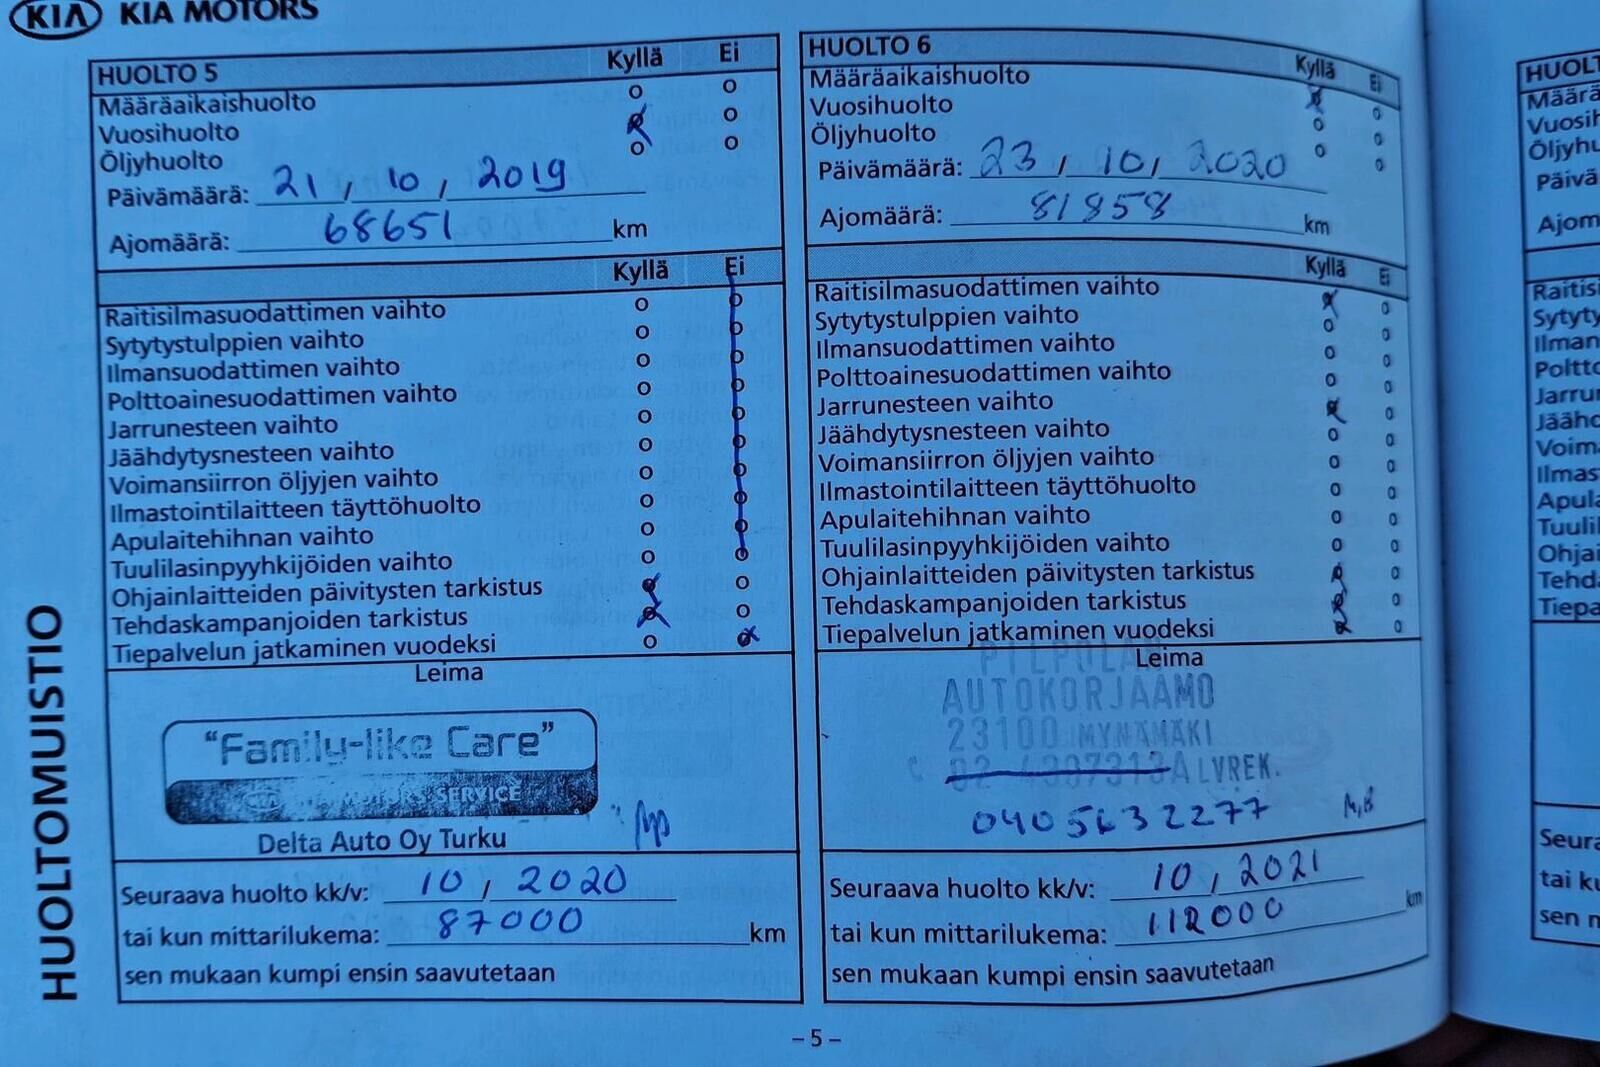 KIA KIA MOTORS
HUOLTOMUISTIO
HUOLTO 5 Kyllä Ei
Määräaikaishuolto o o
Vuosihuolto o o
Öljyhuolto o o
Päivämäärä: 21, 10, 2019
Ajomäärä: 68651 km
Kyllä Ei
Raitisilmasuodattimen vaihto o o
Sytytystulppien vaihto o o
Ilmansuodattimen vaihto o o
Polttoainesuodattimen vaihto o o
Jarrunesteen vaihto o o
Jäähdytysnesteen vaihto o o
Voimansiirron öljyjen vaihto o o
Ilmastointilaitteen täyttöhuolto o o
Apulaitehihnan vaihto o o
Tuulilasinpyyhkijöiden vaihto o o
Ohjainlaitteiden päivitysten tarkistus o o
Tehdaskampanjoiden tarkistus o o
Tiepalvelun jatkaminen vuodeksi o o
Leima
"Family-like Care"
KIA MOTORS SERVICE
Delta Auto Oy Turku
Seuraava huolto kk/v: 10, 2020
tai kun mittarilukema: 87000 km
sen mukaan kumpi ensin saavutetaan
HUOLTO 6 Kyllä Ei
Määräaikaishuolto o o
Vuosihuolto o o
Öljyhuolto o o
Päivämäärä: 23, 10, 2020
Ajomäärä: 81858 km
Kyllä Ei
Raitisilmasuodattimen vaihto o o
Sytytystulppien vaihto o o
Ilmansuodattimen vaihto o o
Polttoainesuodattimen vaihto o o
Jarrunesteen vaihto o o
Jäähdytysnesteen vaihto o o
Voimansiirron öljyjen vaihto o o
Ilmastointilaitteen täyttöhuolto o o
Apulaitehihnan vaihto o o
Tuulilasinpyyhkijöiden vaihto o o
Ohjainlaitteiden päivitysten tarkistus o o
Tehdaskampanjoiden tarkistus o o
Tiepalvelun jatkaminen vuodeksi o o
Leima
PILPOLAN
AUTOKORJAAMO
23100 MYNÄMÄKI
ALVREK.
0405632277
Seuraava huolto kk/v: 10, 2021
tai kun mittarilukema: 112000 km
sen mukaan kumpi ensin saavutetaan
– 5 –
HUOLT
Määrä
Vuosih
Öljyhu
Päivä
Ajom
Raitisi
Sytyty
Ilman
Poltto
Jarru
Jäähd
Voim
Ilmas
Apula
Tuulil
Ohja
Tehda
Tiepa
Seura
tai ku
sen m